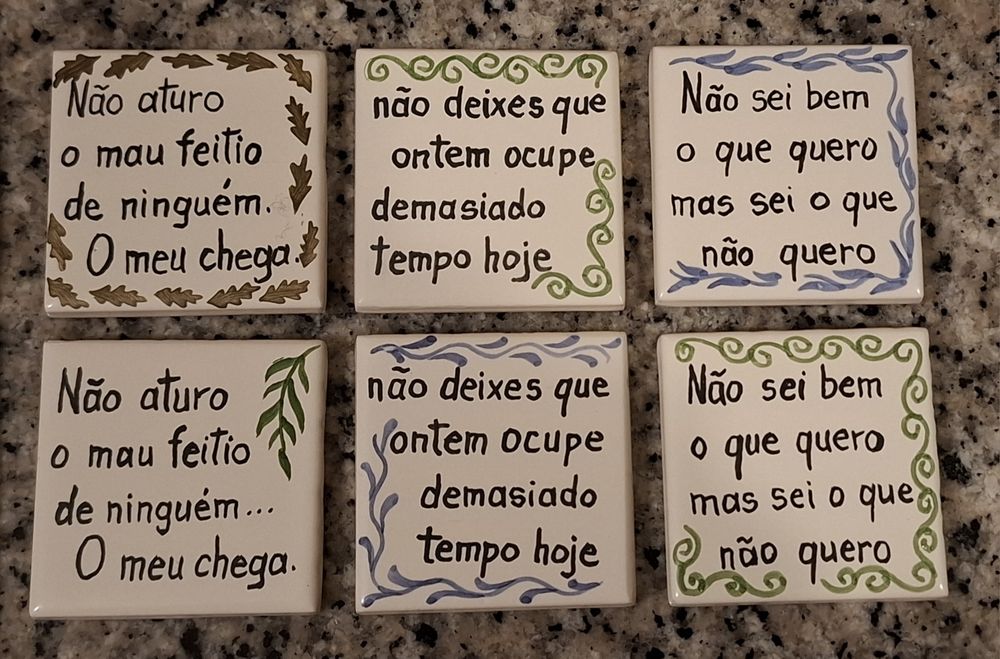 Não aturo
o mau feitio
de ninguém.
O meu chega.
não deixes que
ontem ocupe
demasiado
tempo hoje
Não sei bem
o que quero
mas sei o que
não quero
Não aturo
o mau feitio
de ninguém...
O meu chega.
não deixes que
ontem ocupe
demasiado
tempo hoje
Não sei bem
o que quero
mas sei o que
não quero